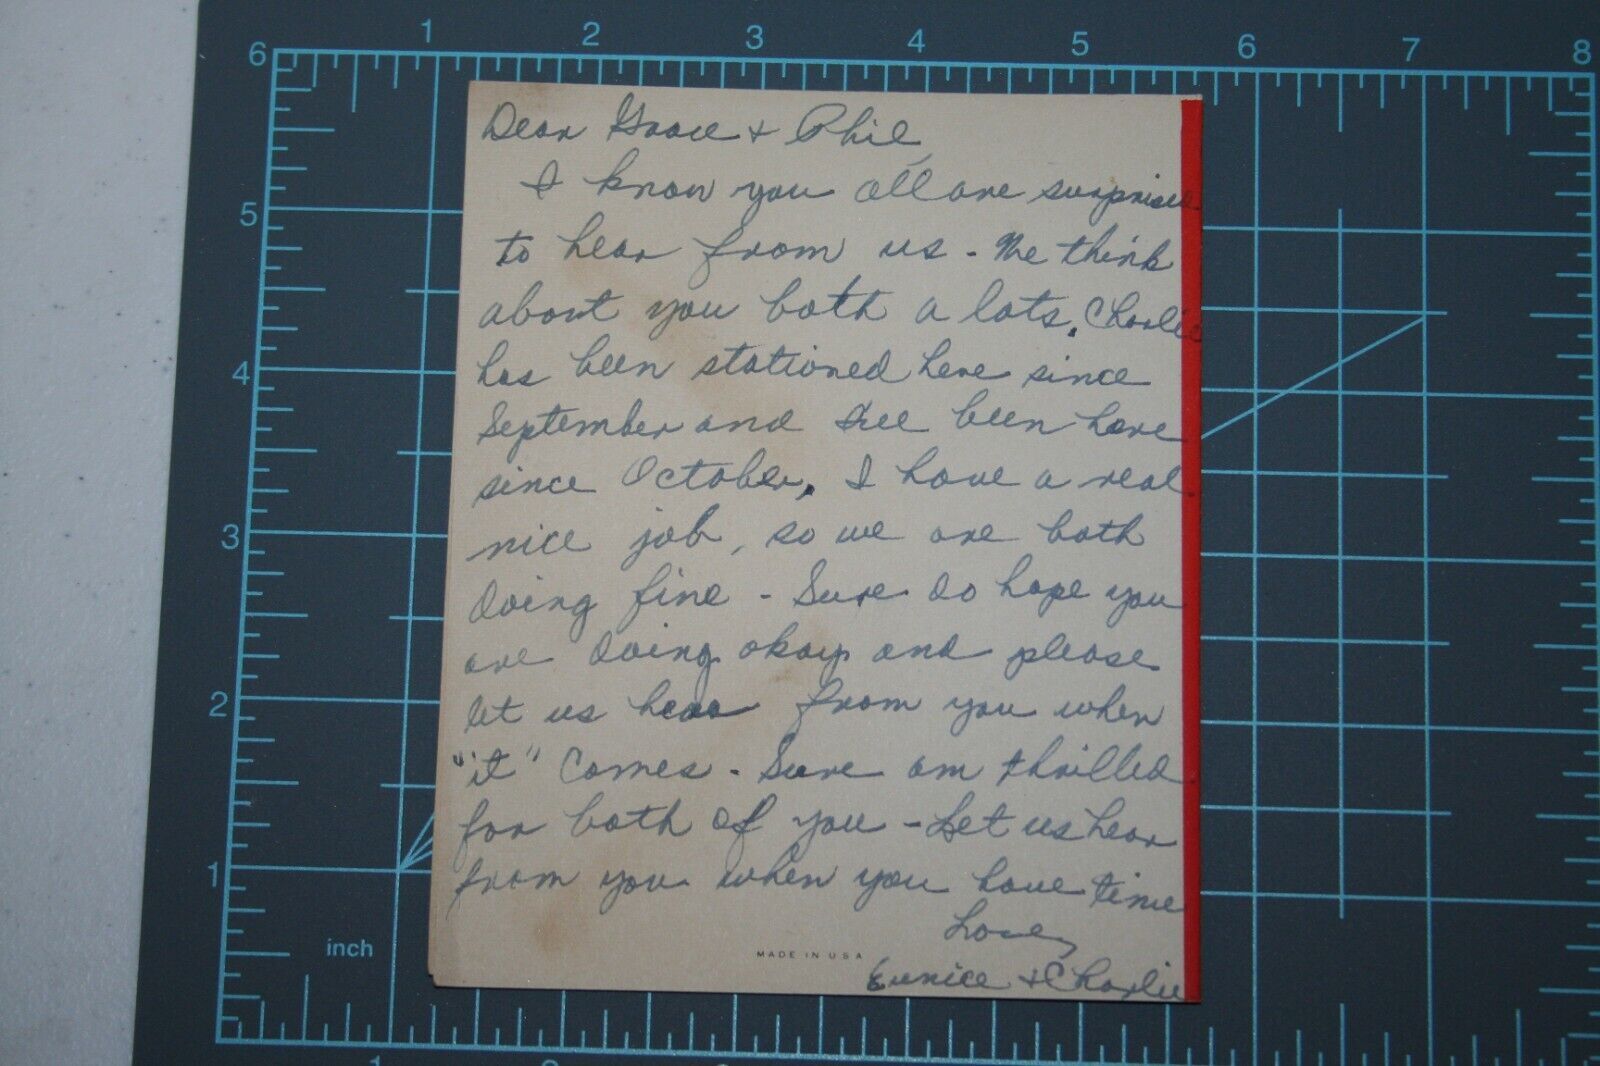 1 2 3 4 5 6 7 8
6
5
4
3
2
1
inch
1
Dear Grace + Phil,
I know you all are surprised
to hear from us - We think
about you both a lots. Charlie
has been stationed here since
September and I've been here
since October. I have a real
nice job, so we are both
doing fine - Sure do hope you
are doing okay and please
let us hear from you when
"it" comes - Sure am thrilled
for both of you - Let us hear
from you when you have time
Love,
Eunice + Charlie
MADE IN USA